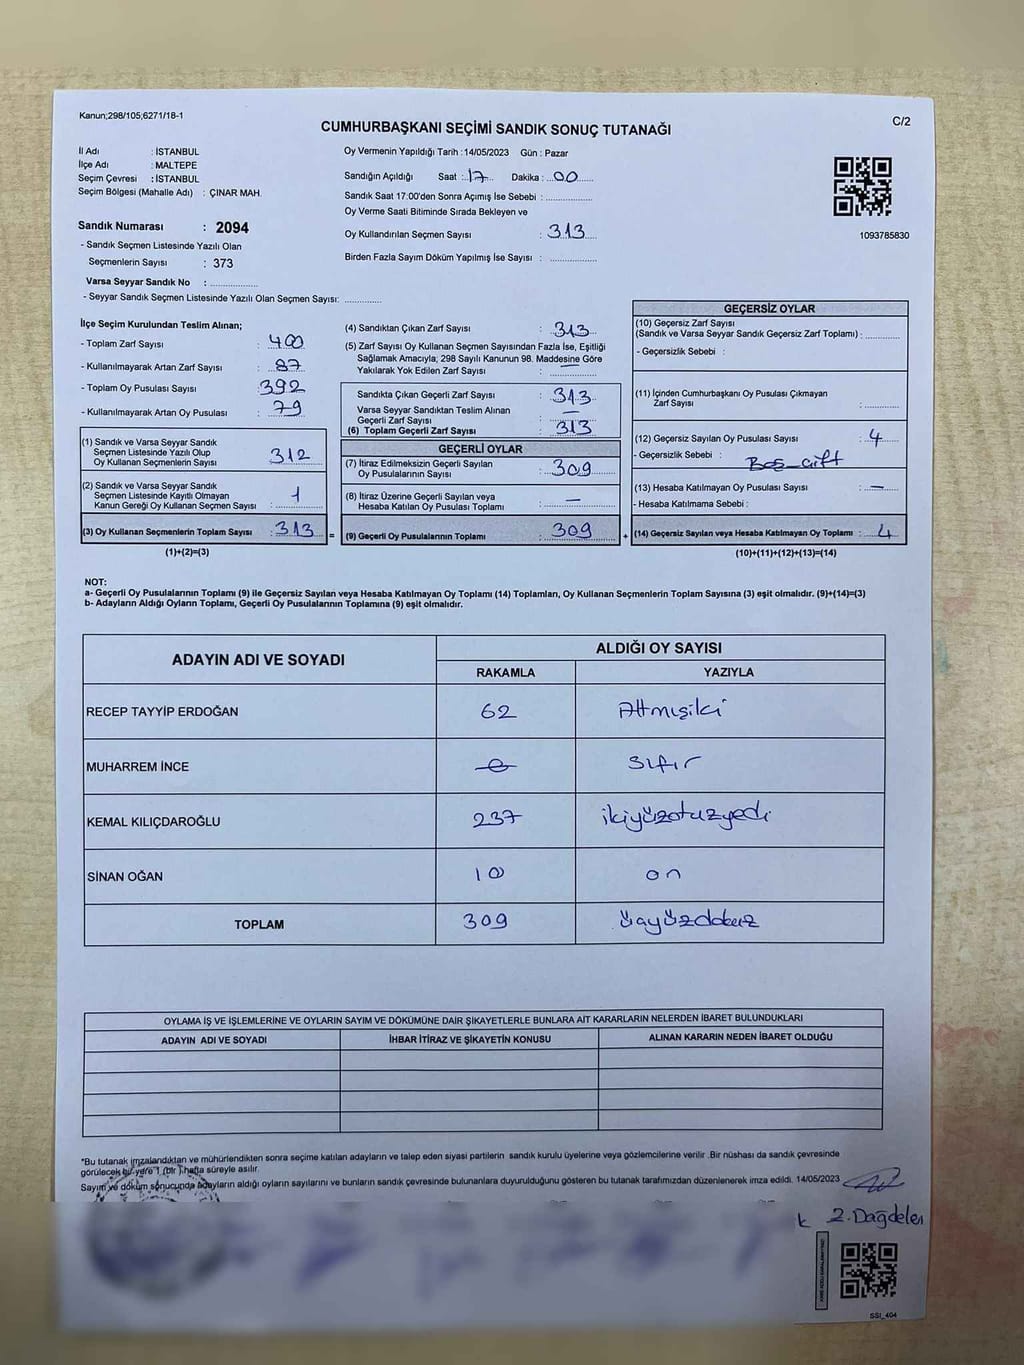 Kanun;298/105;6271/18-1
C/2
CUMHURBAŞKANI SEÇİMİ SANDIK SONUÇ TUTANAĞI
İl Adı : İSTANBUL
İlçe Adı : MALTEPE
Seçim Çevresi : İSTANBUL
Seçim Bölgesi (Mahalle Adı) : ÇINAR MAH.
Sandık Numarası : 2094
- Sandık Seçmen Listesinde Yazılı Olan
Seçmenlerin Sayısı : 373
Varsa Seyyar Sandık No : ................
- Seyyar Sandık Seçmen Listesinde Yazılı Olan Seçmen Sayısı: ............
Oy Vermenin Yapıldığı Tarih : 14/05/2023 Gün : Pazar
Sandığın Açıldığı Saat : 17 Dakika : 00
Sandık Saat 17:00'den Sonra Açımış İse Sebebi : ................
Oy Verme Saati Bitiminde Sırada Bekleyen ve
Oy Kullandırılan Seçmen Sayısı : 313
Birden Fazla Sayım Döküm Yapılmış İse Sayısı : ................
1093785830
İlçe Seçim Kurulundan Teslim Alınan;
- Toplam Zarf Sayısı : 400
- Kullanılmayarak Artan Zarf Sayısı : 87
- Toplam Oy Pusulası Sayısı : 392
- Kullanılmayarak Artan Oy Pusulası : 79
(1) Sandık ve Varsa Seyyar Sandık
Seçmen Listesinde Yazılı Olup
Oy Kullanan Seçmenlerin Sayısı : 312
(2) Sandık ve Varsa Seyyar Sandık
Seçmen Listesinde Kayıtlı Olmayan
Kanun Gereği Oy Kullanan Seçmen Sayısı : 1
(3) Oy Kullanan Seçmenlerin Toplam Sayısı : 313 =
(1)+(2)=(3)
(4) Sandıktan Çıkan Zarf Sayısı : 313
(5) Zarf Sayısı Oy Kullanan Seçmen Sayısından Fazla İse, Eşitliği
Sağlamak Amacıyla; 298 Sayılı Kanunun 98. Maddesine Göre
Yakılarak Yok Edilen Zarf Sayısı : —
Sandıkta Çıkan Geçerli Zarf Sayısı : 313
Varsa Seyyar Sandıktan Teslim Alınan
Geçerli Zarf Sayısı : —
(6) Toplam Geçerli Zarf Sayısı : 313
GEÇERLİ OYLAR
(7) İtiraz Edilmeksizin Geçerli Sayılan
Oy Pusulalarının Sayısı : 309
(8) İtiraz Üzerine Geçerli Sayılan veya
Hesaba Katılan Oy Pusulası Toplamı : —
(9) Geçerli Oy Pusulalarının Toplamı : 309 +
GEÇERSİZ OYLAR
(10) Geçersiz Zarf Sayısı
(Sandık ve Varsa Seyyar Sandık Geçersiz Zarf Toplamı) : ............
- Geçersizlik Sebebi :
(11) İçinden Cumhurbaşkanı Oy Pusulası Çıkmayan
Zarf Sayısı : ............
(12) Geçersiz Sayılan Oy Pusulası Sayısı : 4
- Geçersizlik Sebebi : Boş_çift
(13) Hesaba Katılmayan Oy Pusulası Sayısı : —
- Hesaba Katılmama Sebebi :
(14) Geçersiz Sayılan veya Hesaba Katılmayan Oy Toplamı : 4
(10)+(11)+(12)+(13)=(14)
NOT:
a- Geçerli Oy Pusulalarının Toplamı (9) ile Geçersiz Sayılan veya Hesaba Katılmayan Oy Toplamı (14) Toplamları, Oy Kullanan Seçmenlerin Toplam Sayısına (3) eşit olmalıdır. (9)+(14)=(3)
b- Adayların Aldığı Oyların Toplamı, Geçerli Oy Pusulalarının Toplamına (9) eşit olmalıdır.
ADAYIN ADI VE SOYADI
ALDIĞI OY SAYISI
RAKAMLA YAZIYLA
RECEP TAYYİP ERDOĞAN 62 Altmışiki
MUHARREM İNCE 0 Sıfır
KEMAL KILIÇDAROĞLU 237 ikiyüzotuzyedi
SİNAN OĞAN 10 on
TOPLAM 309 üçyüzdokuz
OYLAMA İŞ VE İŞLEMLERİNE VE OYLARIN SAYIM VE DÖKÜMÜNE DAİR ŞİKAYETLERLE BUNLARA AİT KARARLARIN NELERDEN İBARET BULUNDUKLARI
ADAYIN ADI VE SOYADI İHBAR İTİRAZ VE ŞİKAYETİN KONUSU ALINAN KARARIN NEDEN İBARET OLDUĞU
*Bu tutanak imzalandıktan ve mühürlendikten sonra seçime katılan adayların ve talep eden siyasi partilerin sandık kurulu üyelerine veya gözlemcilerine verilir .Bir nüshası da sandık çevresinde
görülecek bir yere 1 (bir ) hafta süreyle asılır.
Sayım ve döküm sonucunda adayların aldığı oyların sayılarını ve bunların sandık çevresinde bulunanlara duyurulduğunu gösteren bu tutanak tarafımızdan düzenlenerek imza edildi. 14/05/2023
k 2.Dağdelen
SSİ_404